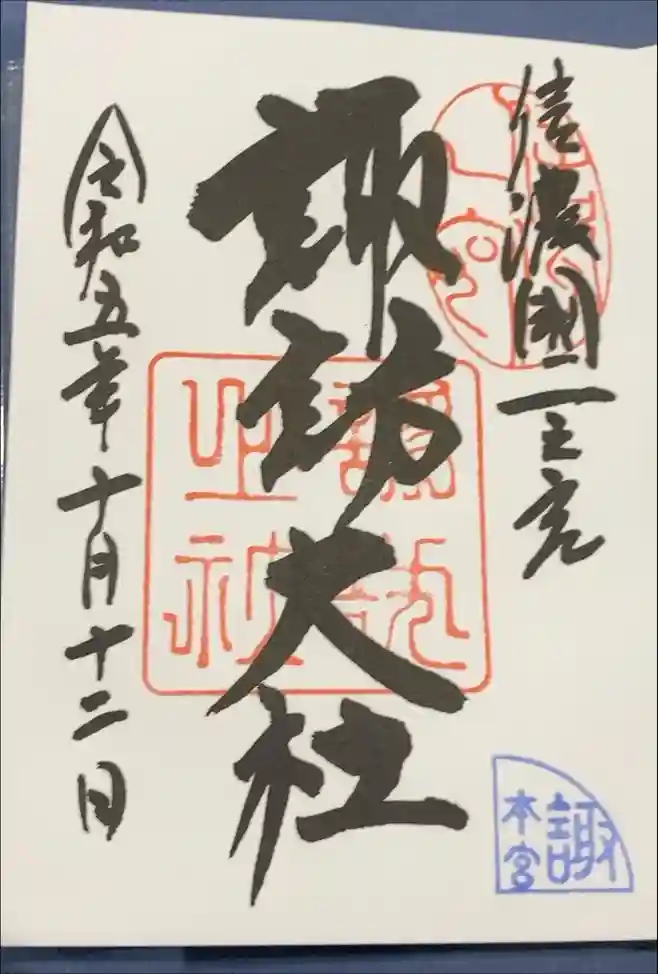 信濃國一之宮
諏訪大社
令和五年十月十二日
諏
本宮